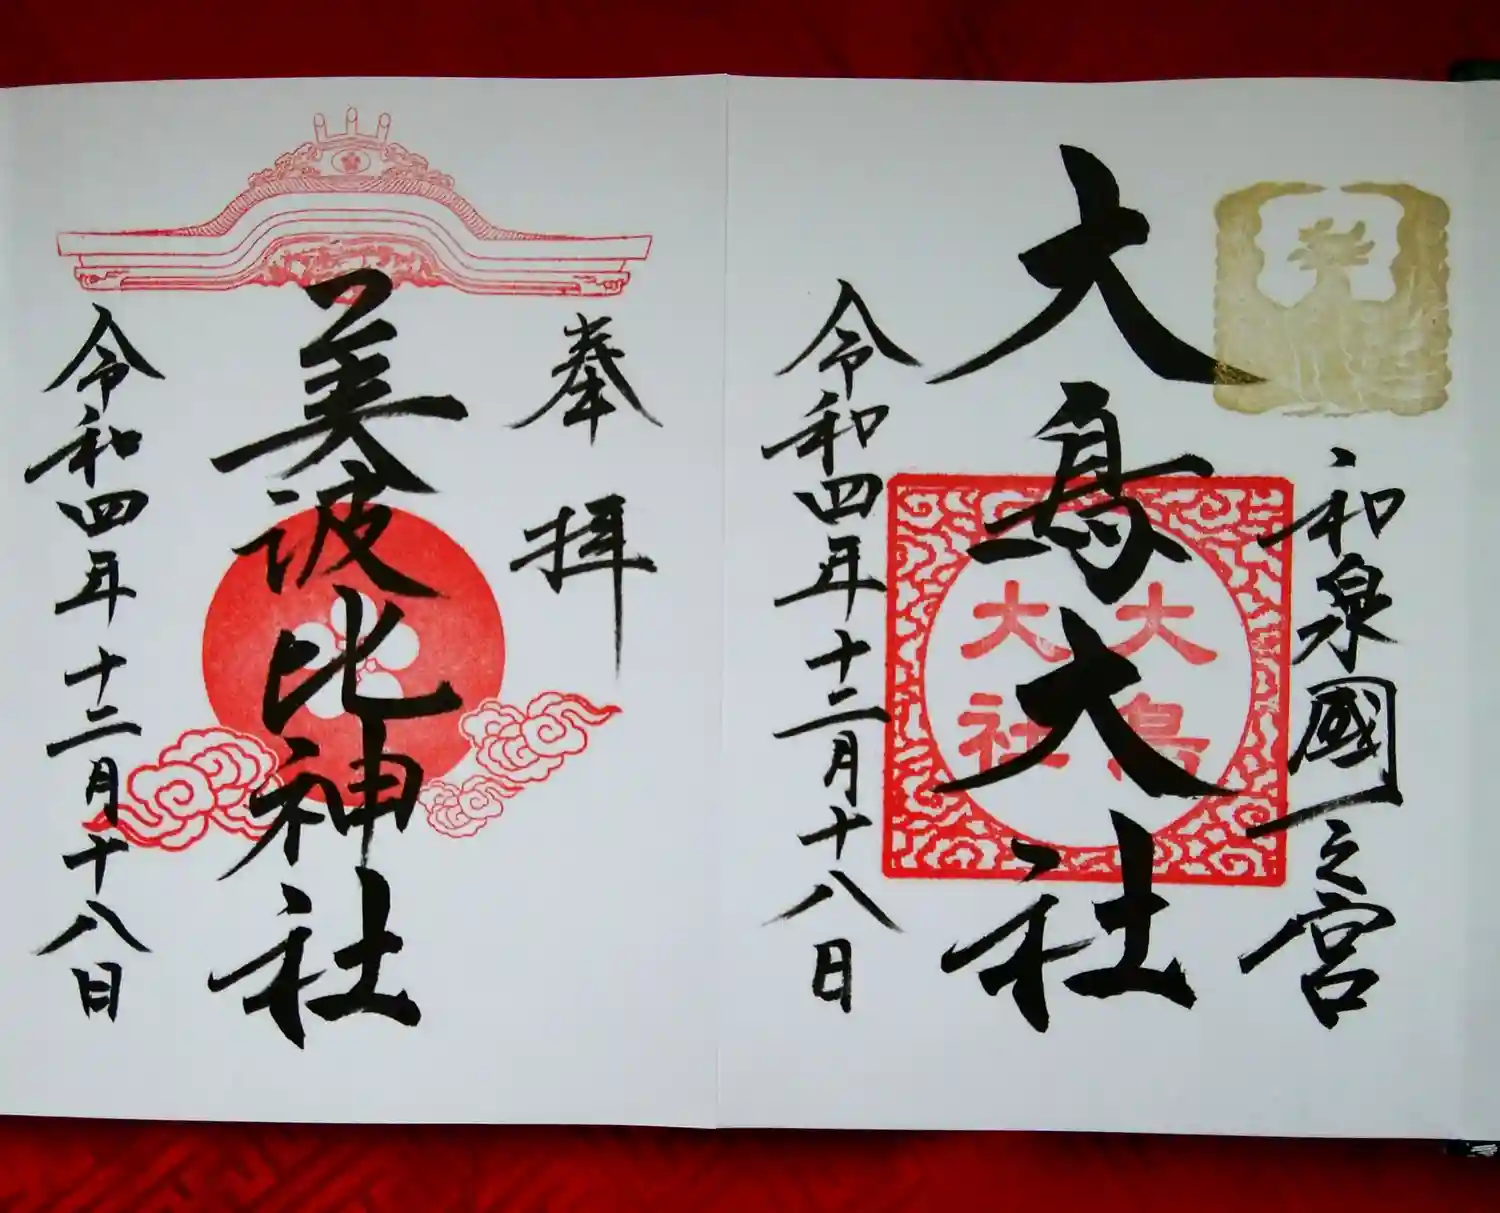 和泉國一之宮
大鳥大社
大鳥
大社
令和四年十二月十八日
奉拝
美波比神社
令和四年十二月十八日